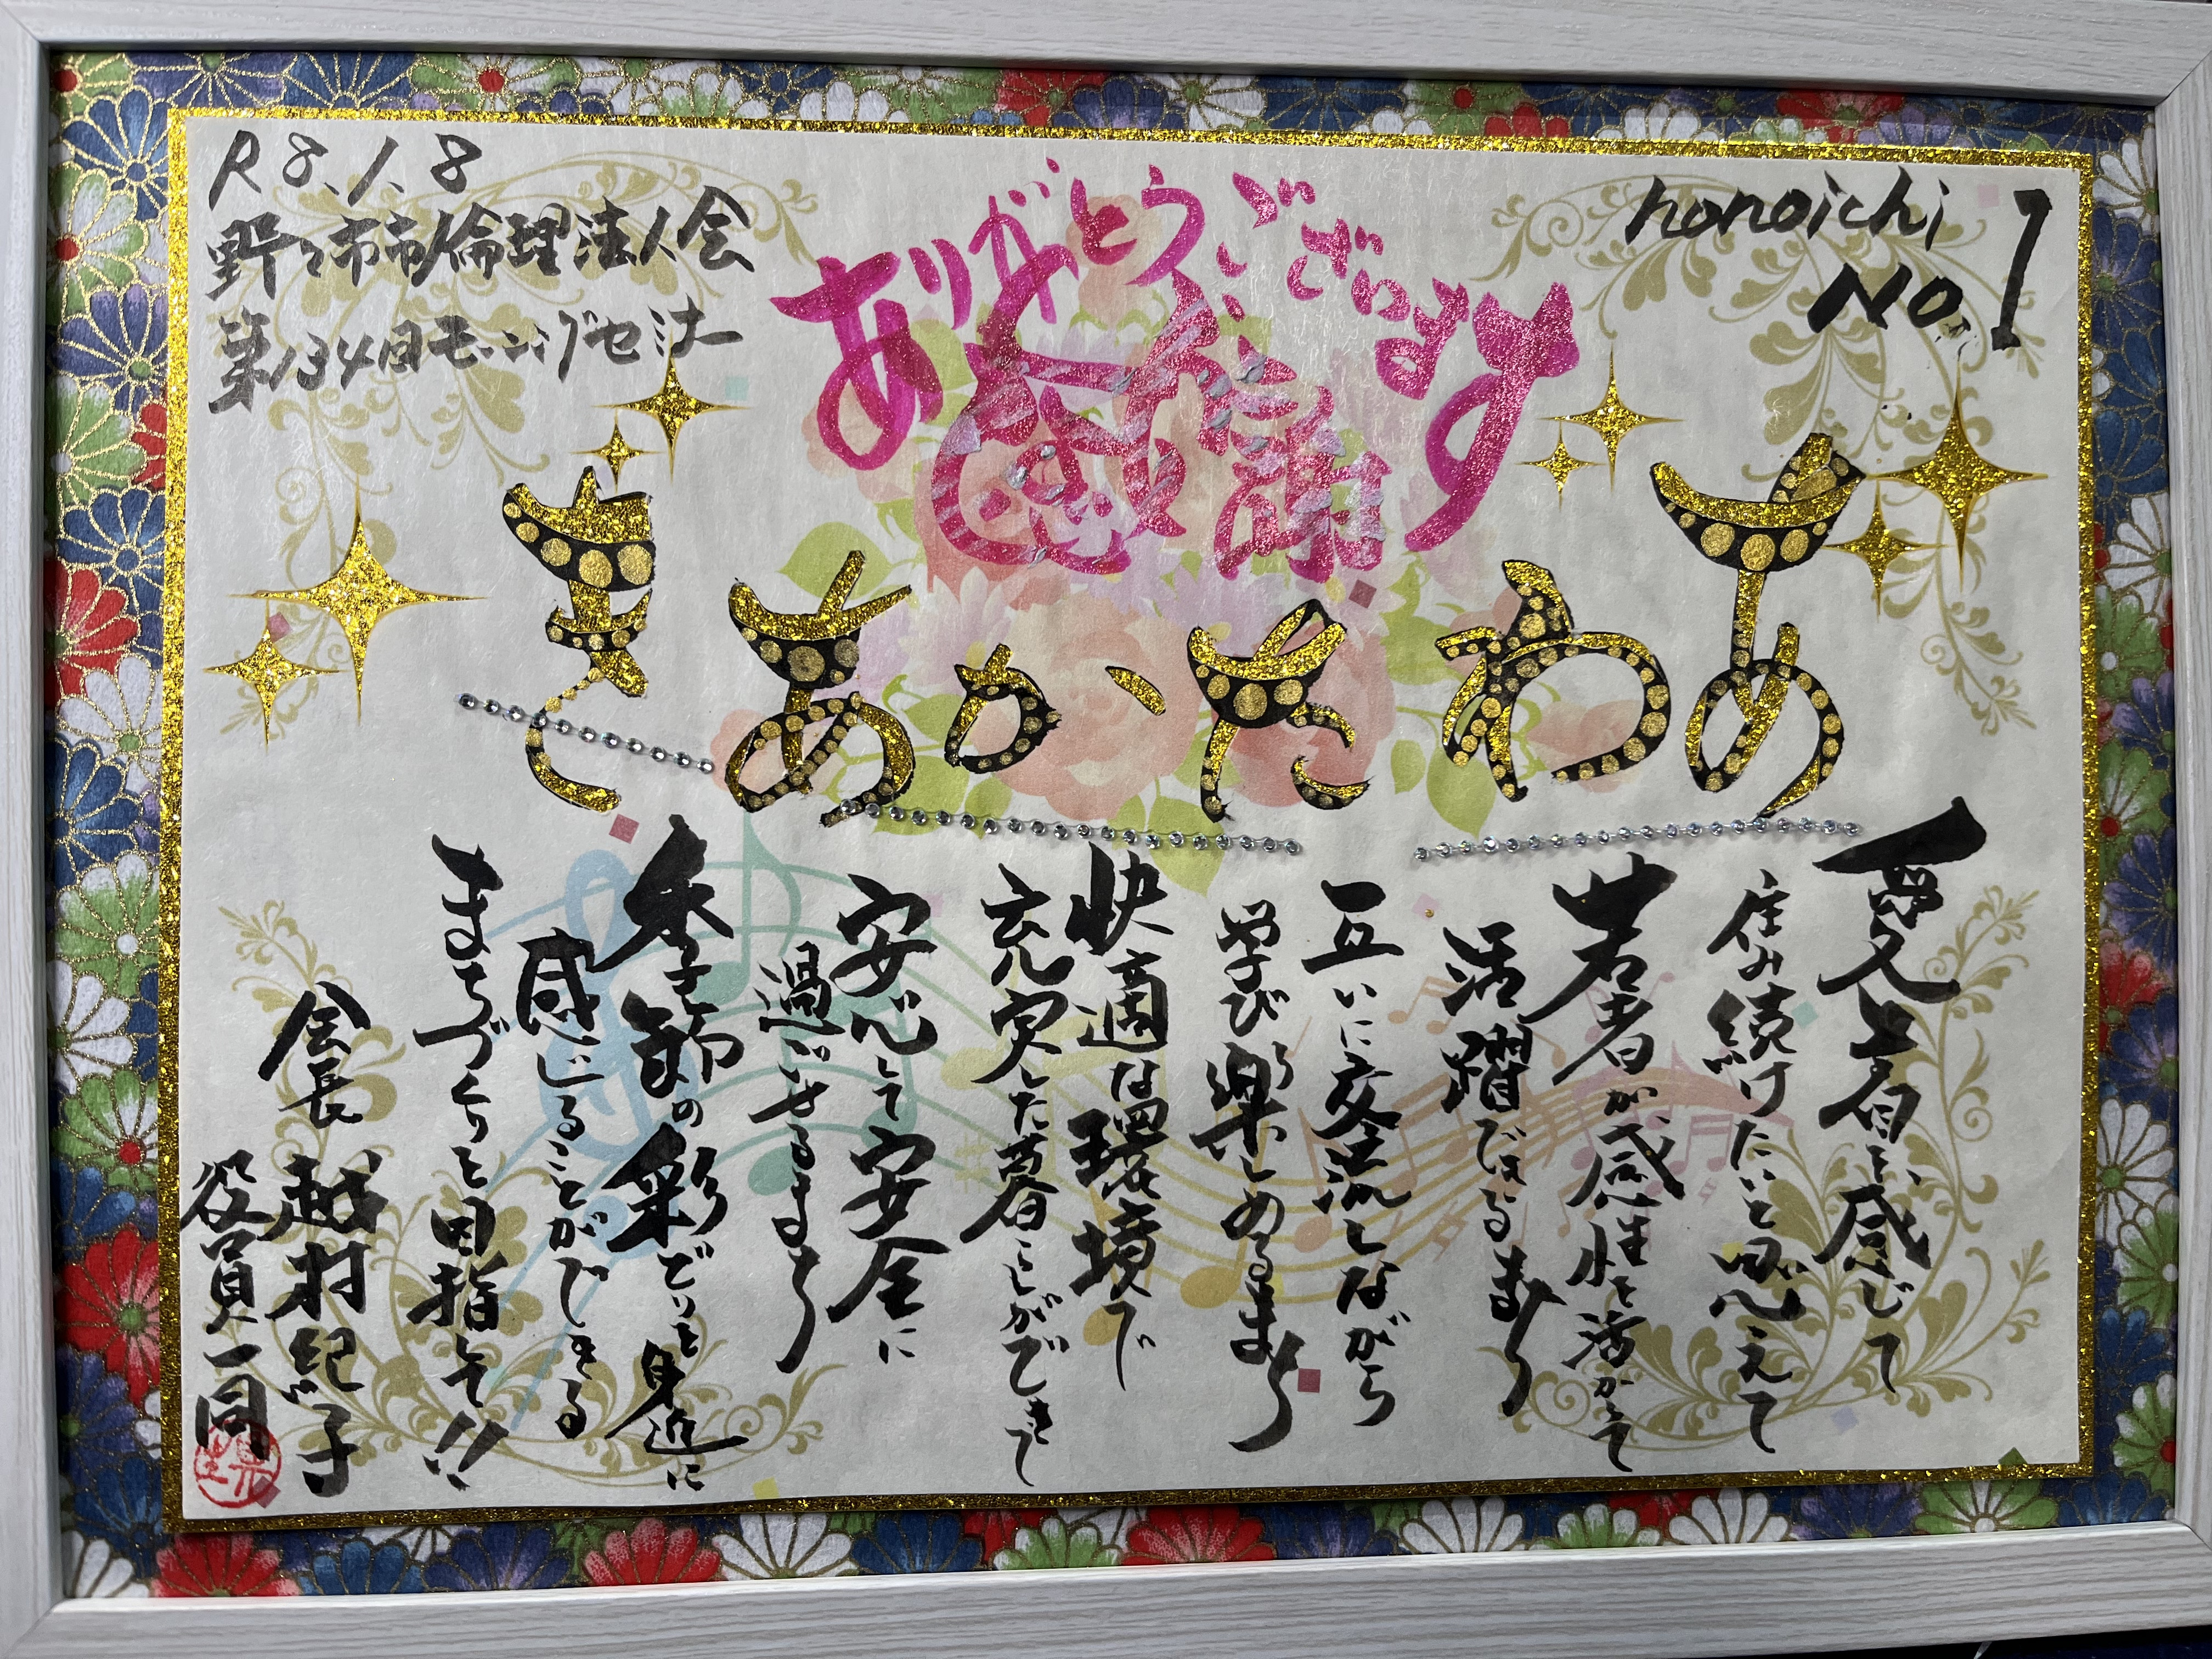 R8.1.8
野々市市倫理法人会
nonoichi
No.1
ありがとうございます
感謝
あわたかあき
愛着を感じて
住み続けたいと思えて
若者が感性を活かして
活躍できるまち
互いに交流しながら
学び楽しめるまち
快適な環境で
充実した暮らしができて
安心して安全に
過ごせるまち
季節の彩どりを身近に
感じることができる
まちづくりを目指して!!
会長 越村紀子
役員一同